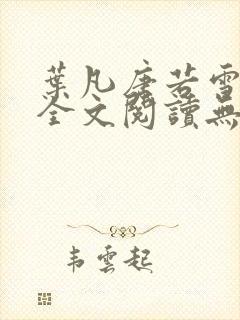 葉凡唐若雪
全文閱讀無
韦雲起